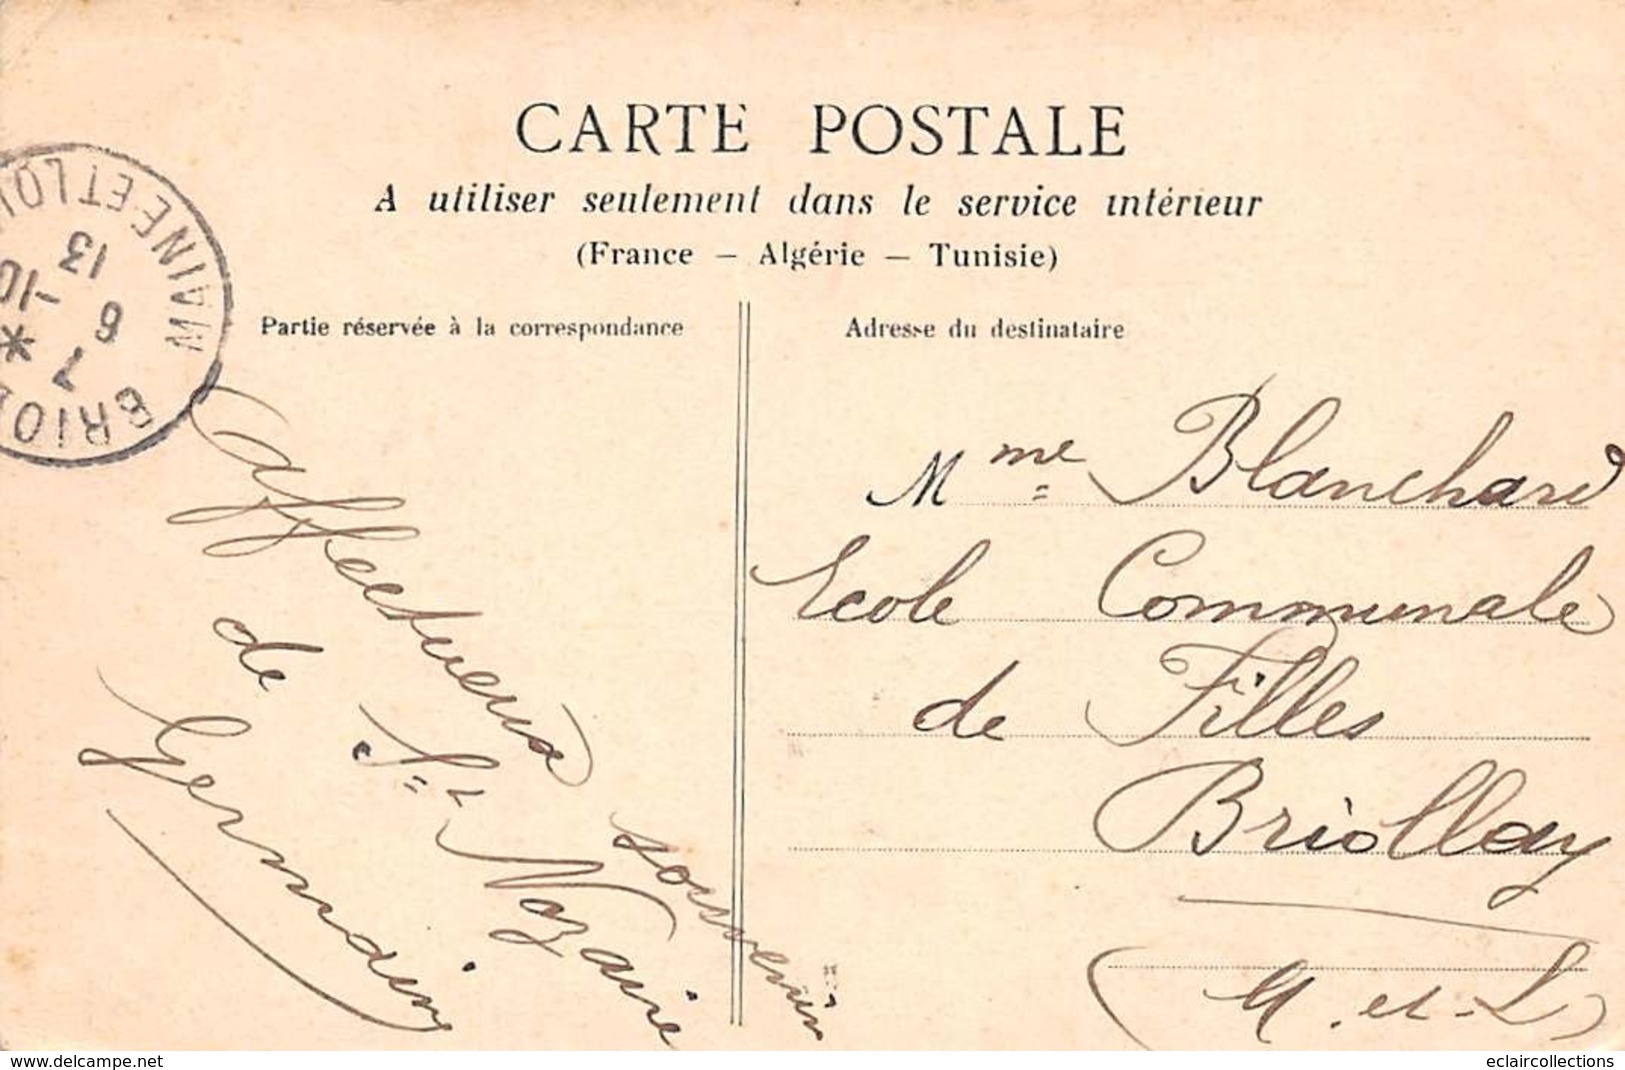 CARTE POSTALE
A utiliser seulement dans le service intérieur
(France — Algérie — Tunisie)
Partie réservée à la correspondance
Adresse du destinataire
MAINE ET LOI
13
-10
6
7
*
BRIOL
Affectueux souvenir
de St Nazaire
Germain
Mme Blanchard
Ecole Communale
de Filles
Briollay
(M. et. L)
www.delcampe.net
eclaircollections